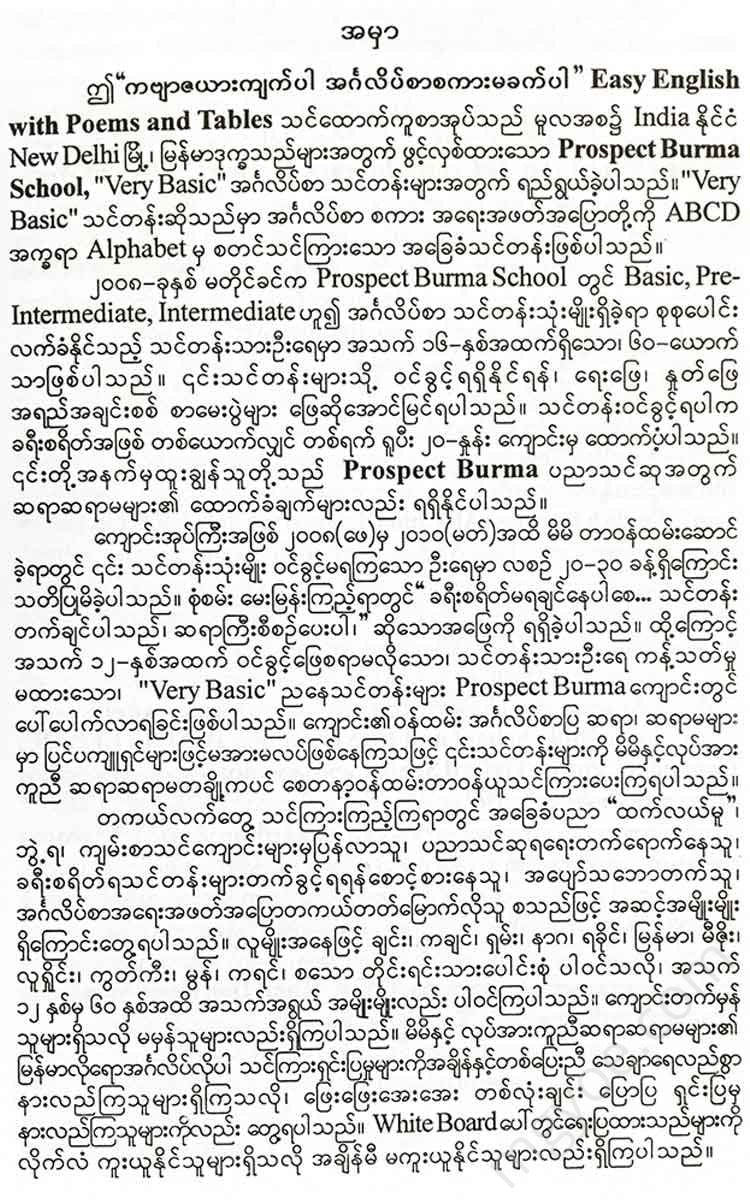 အမှာ
ဤ“ကဗျာဇယားကျက်ပါ အင်္ဂလိပ်စာစကားမခက်ပါ” Easy English
with Poems and Tables သင်ထောက်ကူစာအုပ်သည် မူလအစ၌ India နိုင်ငံ
New Delhi မြို့၊ မြန်မာဒုက္ခသည်များအတွက် ဖွင့်လှစ်ထားသော Prospect Burma
School, "Very Basic" အင်္ဂလိပ်စာ သင်တန်းများအတွက် ရည်ရွယ်ခဲ့ပါသည်။ "Very
Basic" သင်တန်းဆိုသည်မှာ အင်္ဂလိပ်စာ စကား အရေးအဖတ်အပြောတို့ကို ABCD
အက္ခရာ Alphabet မှ စတင်သင်ကြားသော အခြေခံသင်တန်းဖြစ်ပါသည်။
၂၀၀၈–ခုနှစ် မတိုင်ခင်က Prospect Burma School တွင် Basic, Pre-
Intermediate, Intermediate ဟူ၍ အင်္ဂလိပ်စာ သင်တန်းသုံးမျိုးရှိခဲ့ရာ စုစုပေါင်း
လက်ခံနိုင်သည့် သင်တန်းသားဦးရေမှာ အသက် ၁၆–နှစ်အထက်ရှိသော၊ ၆၀–ယောက်
သာဖြစ်ပါသည်။ ၎င်းသင်တန်းများသို့ ဝင်ခွင့်ရရှိနိုင်ရန်၊ ရေးဖြေ၊ နှုတ်ဖြေ
အရည်အချင်းစစ် စာမေးပွဲများ ဖြေဆိုအောင်မြင်ရပါသည်။ သင်တန်းဝင်ခွင့်ရပါက
ခရီးစရိတ်အဖြစ် တစ်ယောက်လျှင် တစ်ရက် ရူပီး ၂၀–နှုန်း ကျောင်းမှ ထောက်ပံ့ပါသည်။
၎င်းတို့အနက်မှထူးချွန်သူတို့သည် Prospect Burma ပညာသင်ဆုအတွက်
ဆရာဆရာမများ၏ ထောက်ခံချက်များလည်း ရရှိနိုင်ပါသည်။
ကျောင်းအုပ်ကြီးအဖြစ် ၂၀၀၈(ဖေ)မှ ၂၀၁၀(မတ်)အထိ မိမိ တာဝန်ထမ်းဆောင်
ခဲ့ရာတွင် ၎င်း သင်တန်းသုံးမျိုး ဝင်ခွင့်မရကြသော ဦးရေမှာ လစဉ် ၂၀–၃၀ ခန့်ရှိကြောင်း
သတိပြုမိခဲ့ပါသည်။ စုံစမ်း မေးမြန်းကြည့်ရာတွင်“ ခရီးစရိတ်မရချင်နေပါစေ... သင်တန်း
တက်ချင်ပါသည်၊ ဆရာကြီးစီစဉ်ပေးပါ၊” ဆိုသောအဖြေကို ရရှိခဲ့ပါသည်။ ထို့ကြောင့်
အသက် ၁၂–နှစ်အထက် ဝင်ခွင့်ဖြေစရာမလိုသော၊ သင်တန်းသားဦးရေ ကန့်သတ်မှု
မထားသော၊ "Very Basic" ညနေသင်တန်းများ Prospect Burma ကျောင်းတွင်
ပေါ်ပေါက်လာရခြင်းဖြစ်ပါသည်။ ကျောင်း၏ဝန်ထမ်း အင်္ဂလိပ်စာပြ ဆရာ၊ ဆရာမများ
မှာ ပြင်ပကျူရှင်များဖြင့်မအားမလပ်ဖြစ်နေကြသဖြင့် ၎င်းသင်တန်းများကို မိမိနှင့်လုပ်အား
ကူညီ ဆရာဆရာမတချို့ကပင် စေတနာ့ဝန်ထမ်းတာဝန်ယူသင်ကြားပေးကြရပါသည်။
တကယ်လက်တွေ့ သင်ကြားကြည့်ကြရာတွင် အခြေခံပညာ “ထက်လယ်မူ”၊
ဘွဲ့ရ၊ ကျမ်းစာသင်ကျောင်းများမှပြန်လာသူ၊ ပညာသင်ဆုရရေးတက်ရောက်နေသူ၊
ခရီးစရိတ်ရသင်တန်းများတက်ခွင့်ရရန်စောင့်စားနေသူ၊ အပျော်သဘောတက်သူ၊
အင်္ဂလိပ်စာအရေးအဖတ်အပြောတကယ်တတ်မြောက်လိုသူ စသည်ဖြင့် အဆင့်အမျိုးမျိုး
ရှိကြောင်းတွေ့ရပါသည်။ လူမျိုးအနေဖြင့် ချင်း၊ ကချင်၊ ရှမ်း၊ နာဂ၊ ရခိုင်၊ မြန်မာ၊ မီဇိုး၊
လူရှိုင်း၊ ကွတ်ကီး၊ မွန်၊ ကရင်၊ စသော တိုင်းရင်းသားပေါင်းစုံ ပါဝင်သလို၊ အသက်
၁၂ နှစ်မှ ၆၀ နှစ်အထိ အသက်အရွယ် အမျိုးမျိုးလည်း ပါဝင်ကြပါသည်။ ကျောင်းတက်မှန်
သူများရှိသလို မမှန်သူများလည်းရှိကြပါသည်။ မိမိနှင့် လုပ်အားကူညီဆရာဆရာမများ၏
မြန်မာလိုရောအင်္ဂလိပ်လိုပါ သင်ကြားရှင်းပြမှုများကိုအချိန်နှင့်တစ်ပြေးညီ သေချာရေလည်စွာ
နားလည်ကြသူများရှိကြသလို၊ ဖြေးဖြေးအေးအေး တစ်လုံးချင်း ပြောပြ ရှင်းပြမှ
နားလည်ကြသူများကိုလည်း တွေ့ရပါသည်။ White Board ပေါ်တွင်ရေးပြထားသည်များကို
လိုက်လံ ကူးယူနိုင်သူများရှိသလို အချိန်မီ မကူးယူနိုင်သူများလည်းရှိကြပါသည်။